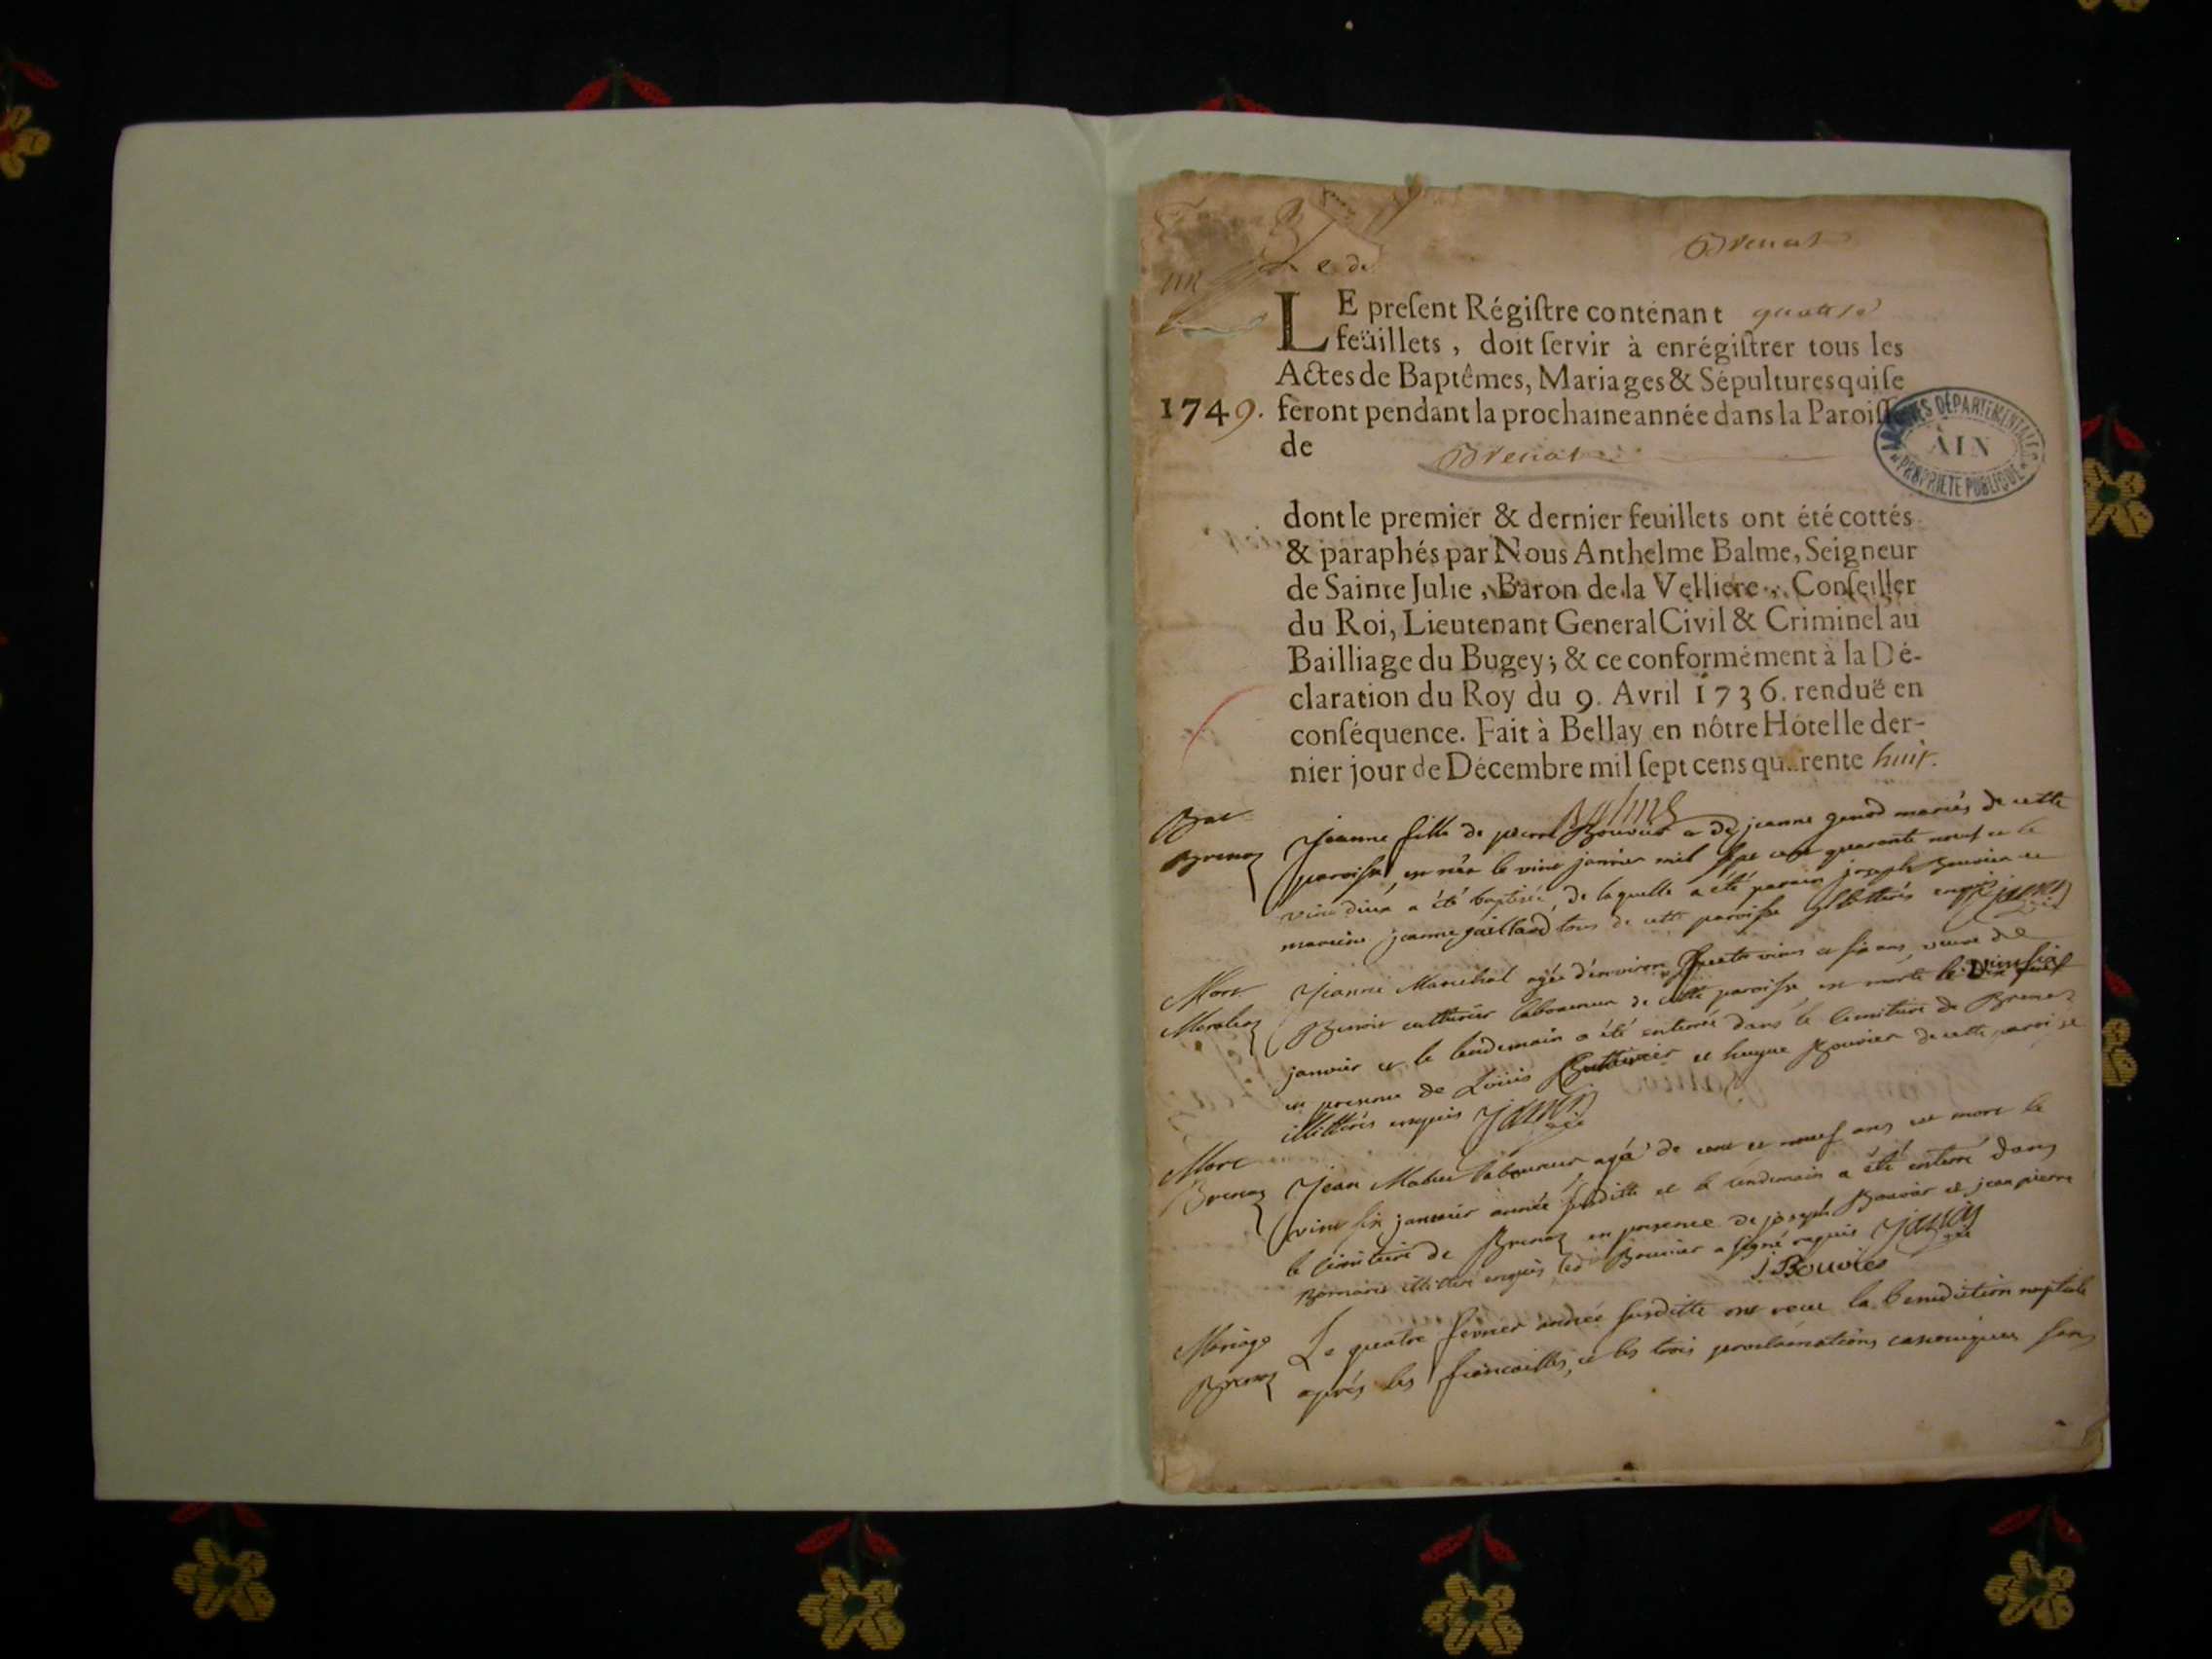 Brenas
LE preſent Régiſtre contenant quatorse
feüillets, doit ſervir à enrégiſtrer tous les
Actes de Baptêmes, Mariages & Sépultures qui ſe
1749. feront pendant la prochaine année dans la Paroiſſe
de Brenas
ARCHIVES DÉPARTEMENTALES
AIN
PROPRIÉTÉ PUBLIQUE
dont le premier & dernier feuillets ont été cottés
& paraphés par Nous Anthelme Balme, Seigneur
de Sainte Julie, Baron de la Velliere, Conſeiller
du Roi, Lieutenant General Civil & Criminel au
Bailliage du Bugey; & ce conformément à la Dé-
claration du Roy du 9. Avril 1736. renduë en
conſéquence. Fait à Bellay en nôtre Hôtel le der-
nier jour de Décembre mil ſept cens quarente huit.
Balme
Bat Jeanne fille de pierre Bouvier et de jeanne genod mariés de cette
Brenaz paroisse, est née le vint janvier mil sept cent quarante neuf et le
vint deux a été baptisée, de laquelle a été parain joseph Bouvier et
maraine jeanne gaillard tous de cette paroisse illitterés enquis
Mort Jeanne Marechal agée d'environ quatre vint et six ans, veuve de
Benoit cuttivier laboureur de cette paroisse est morte le vint six
janvier et le lendemain a été enterrée dans le cimitiere de Brenaz
en presence de Loüis Cuttivier et hugue Bouvier de cette paroisse
illitterés enquis
Mort
Brenaz Jean Mabue laboureur agé de cent et neuf ans est mort le
vint six janvier année susditte et le lendemain a été enterré dans
le cimitiere de Brenaz en presence de joseph Bouvier et jean pierre
illitteré enquis led Bouvier a signé requis
J Bouvier
Mariage Le quatre fevrier année susditte ont receu la benediction nuptiale
Brenaz aprés les fiançailles, et les trois proclamations canoniques sans